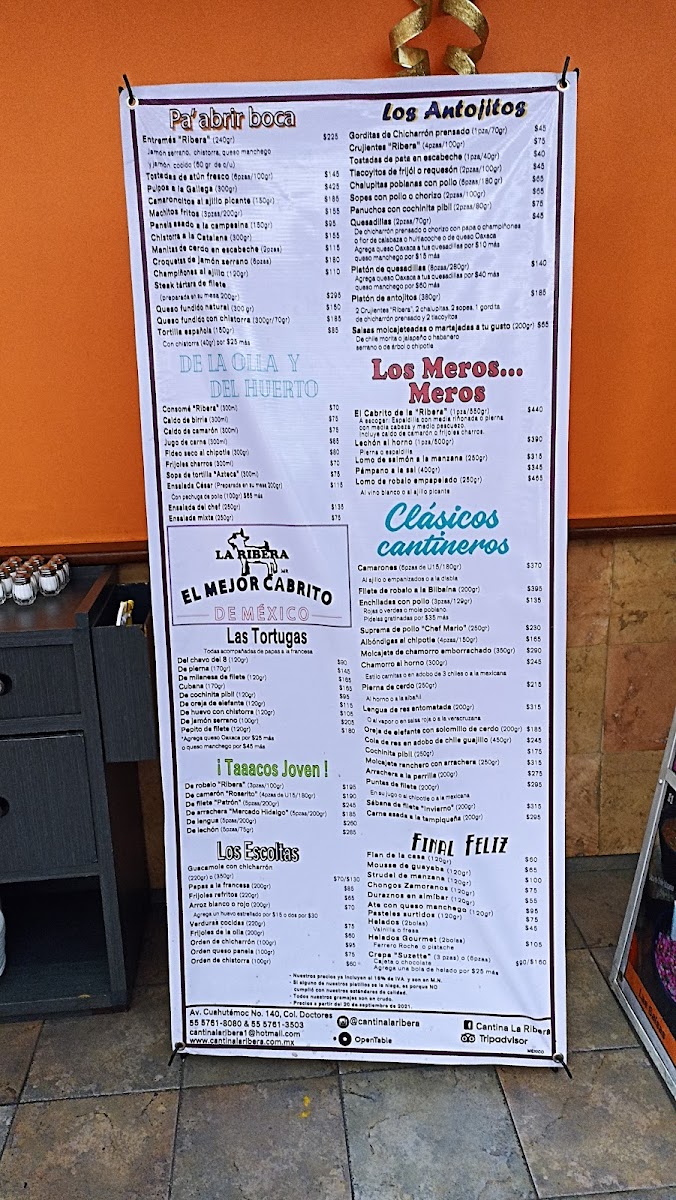 Pa' abrir boca
Entremés "Ribera" (240gr) $225
Jamón serrano, chistorra, queso manchego
y jamón cocido (60 gr de c/u)
Tostadas de atún fresco (6pzas/100gr) $145
Pulpos a la Gallega (300gr) $425
Camaroncitos al ajillo picante (130gr) $185
Machitos fritos (3pzas/200gr) $155
Panela asado a la campesina (150gr) $95
Chistorra a la Catalana (300gr) $155
Manitas de cerdo en escabeche (2pzas) $115
Croquetas de jamón serrano (6pzas) $180
Champiñones al ajillo (120gr) $110
Steak tártara de filete
(preparada en su mesa 200gr) $295
Queso fundido natural (300 gr) $150
Queso fundido con chistorra (300gr/70gr) $185
Tortilla española (150gr) $85
Con chistorra (40gr) por $25 más
DE LA OLLA Y
DEL HUERTO
Consomé "Ribera" (300ml) $70
Caldo de birria (300ml) $75
Caldo de camarón (300ml) $75
Jugo de carne (300ml) $85
Fideo seco al chipotle (300gr) $80
Frijoles charros (300ml) $70
Sopa de tortilla "Azteca" (300ml) $75
Ensalada César (Preparada en su mesa 200gr) $115
Con pechuga de pollo (100gr) $65 más
Ensalada del chef (250gr) $135
Ensalada mixta (250gr) $75
LA RIBERA
MR
EL MEJOR CABRITO
DE MÉXICO
Las Tortugas
Todas acompañadas de papas a la francesa
Del chavo del 8 (120gr) $90
De pierna (170gr) $145
De milanesa de filete (120gr) $165
Cubana (170gr) $165
De cochinita pibil (120gr) $95
De oreja de elefante (120gr) $115
De huevo con chistorra (120gr) $105
De jamón serrano (100gr) $205
Pepito de filete (120gr) $180
*Agrega queso Oaxaca por $25 más
o queso manchego por $45 más
¡ Taaacos Joven !
De robalo "Ribera" (3pzas/100gr) $195
De camarón "Rosarito" (4pzas de U15/180gr) $190
De filete "Patrón" (5pzas/200gr) $245
De arrachera "Mercado Hidalgo" (5pzas/200gr) $185
De lengua (5pzas/200gr) $260
De lechón (5pzas/75gr) $265
Los Escoltas
Guacamole con chicharrón
(220gr) o (350gr) $70/$130
Papas a la francesa (200gr) $85
Frijoles refritos (220gr) $65
Arroz blanco o rojo (200gr) $70
Agrega un huevo estrellado por $15 o dos por $30
Verduras cocidas (220gr) $75
Frijoles de la olla (200gr) $60
Orden de chicharrón (100gr) $95
Orden queso panela (100gr) $75
Orden de chistorra (100gr) $60
Los Antojitos
Gorditas de Chicharrón prensado (1pza/70gr) $45
Crujientes "Ribera" (4pzas/100gr) $75
Tostadas de pata en escabeche (1pza/40gr) $40
Tlacoyitos de frijól o requesón (2pzas/100gr) $45
Chalupitas poblanas con pollo (6pzas/180 gr) $65
Sopes con pollo o chorizo (2pzas/100gr) $65
Panuchos con cochinita pibil (2pzas/80gr) $75
Quesadillas (2pzas/70gr) $45
De chicharrón prensado o chorizo con papa o champiñones
o flor de calabaza o huitlacoche o de queso Oaxaca
Agrega queso Oaxaca a tus quesadillas por $10 más
queso manchego por $15 más
Platón de quesadillas (8pzas/280gr) $140
Agrega queso Oaxaca a tus quesadillas por $40 más
queso manchego por $60 más
Platón de antojitos (380gr) $185
2 Crujientes "Ribera", 2 chalupitas, 2 sopes, 1 gordita
de chicharrón prensado y 2 tlacoyitos
Salsas molcajeteadas o martajadas a tu gusto (200gr) $65
De chile morita o jalapeño o habanero
serrano o de árbol o chipotle
Los Meros...
Meros
El Cabrito de la "Ribera" (1pza/550gr) $440
A escoger: Espaldilla con media riñonada o pierna
con media cabeza y medio pescuezo.
Incluye caldo de camarón o frijoles charros.
Lechón al horno (1pza/500gr) $390
Pierna o espaldilla
Lomo de salmón a la manzana (250gr) $315
Pámpano a la sal (400gr) $345
Lomo de robalo empapelado (250gr) $465
Al vino blanco o al ajillo picante
Clásicos
cantineros
Camarones (6pzas de U15/180gr) $370
Al ajillo o empanizados o a la diabla
Filete de robalo a la Bilbaína (200gr) $395
Enchiladas con pollo (3pzas/129gr) $135
Rojas o verdes o mole poblano.
Pídelas gratinadas por $35 más
Suprema de pollo "Chef Mario" (250gr) $230
Albóndigas al chipotle (4pzas/150gr) $165
Molcajete de chamorro emborrachado (350gr) $290
Chamorro al horno (300gr) $245
Estilo carnitas o en adobo de 3 chiles o a la mexicana
Pierna de cerdo (250gr) $215
Al horno o a la albañil
Lengua de res entomatada (200gr) $315
O al vapor o en salsa roja o a la veracruzana
Oreja de elefante con solomillo de cerdo (200gr) $185
Cola de res en adobo de chile guajillo (450gr) $245
Cochinita pibil (250gr) $175
Molcajete ranchero con arrachera (250gr) $315
Arrachera a la parrilla (200gr) $275
Puntas de filete (200gr) $295
En su jugo o al chipotle o a la mexicana
Sábana de filete "Invierno" (200gr) $315
Carne asada a la tampiqueña (200gr) $295
FINAL FELIZ
Flan de la casa (120gr) $50
Mousse de guayaba (120gr) $65
Strudel de manzana (120gr) $100
Chongos Zamoranos (120gr) $75
Duraznos en almíbar (120gr) $55
Ate con queso manchego (120gr) $95
Pasteles surtidos (120gr) $75
Helados (2bolas) $45
Vainilla o fresa
Helados Gourmet (2bolas) $105
Ferrero Roche o pistache
Crepa "Suzette" (3 pzas) o (6pzas) $90/$160
Cajeta o chocolate
Agrega una bola de helado por $25 más
- Nuestros precios ya incluyen el 16% de IVA. y son en M.N.
- Si alguno de nuestros platillos se le niega, es porque NO
cumplió con nuestros estándares de calidad.
- Todos nuestros gramajes son en crudo.
- Precios a partir del 20 de septiembre de 2021.
Av. Cuahutémoc No. 140, Col. Doctores
55 5761-8080 & 55 5761-3503
cantinalaribera1@hotmail.com
www.cantinalaribera.com.mx
@cantinalaribera
OpenTable
Cantina La Ribera
Tripadvisor
MÉXICO